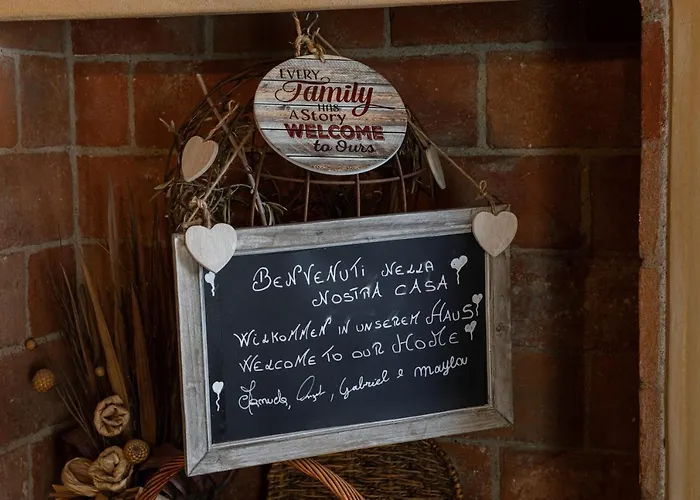 EVERY
Family
HAS
A Story
WELCOME
to Ours
BENVENUTI NELLA
NOSTRA CASA
WILKOMMEN IN UNSEREM HAUS
WELCOME TO OUR HOME
Gabriel e Mayla